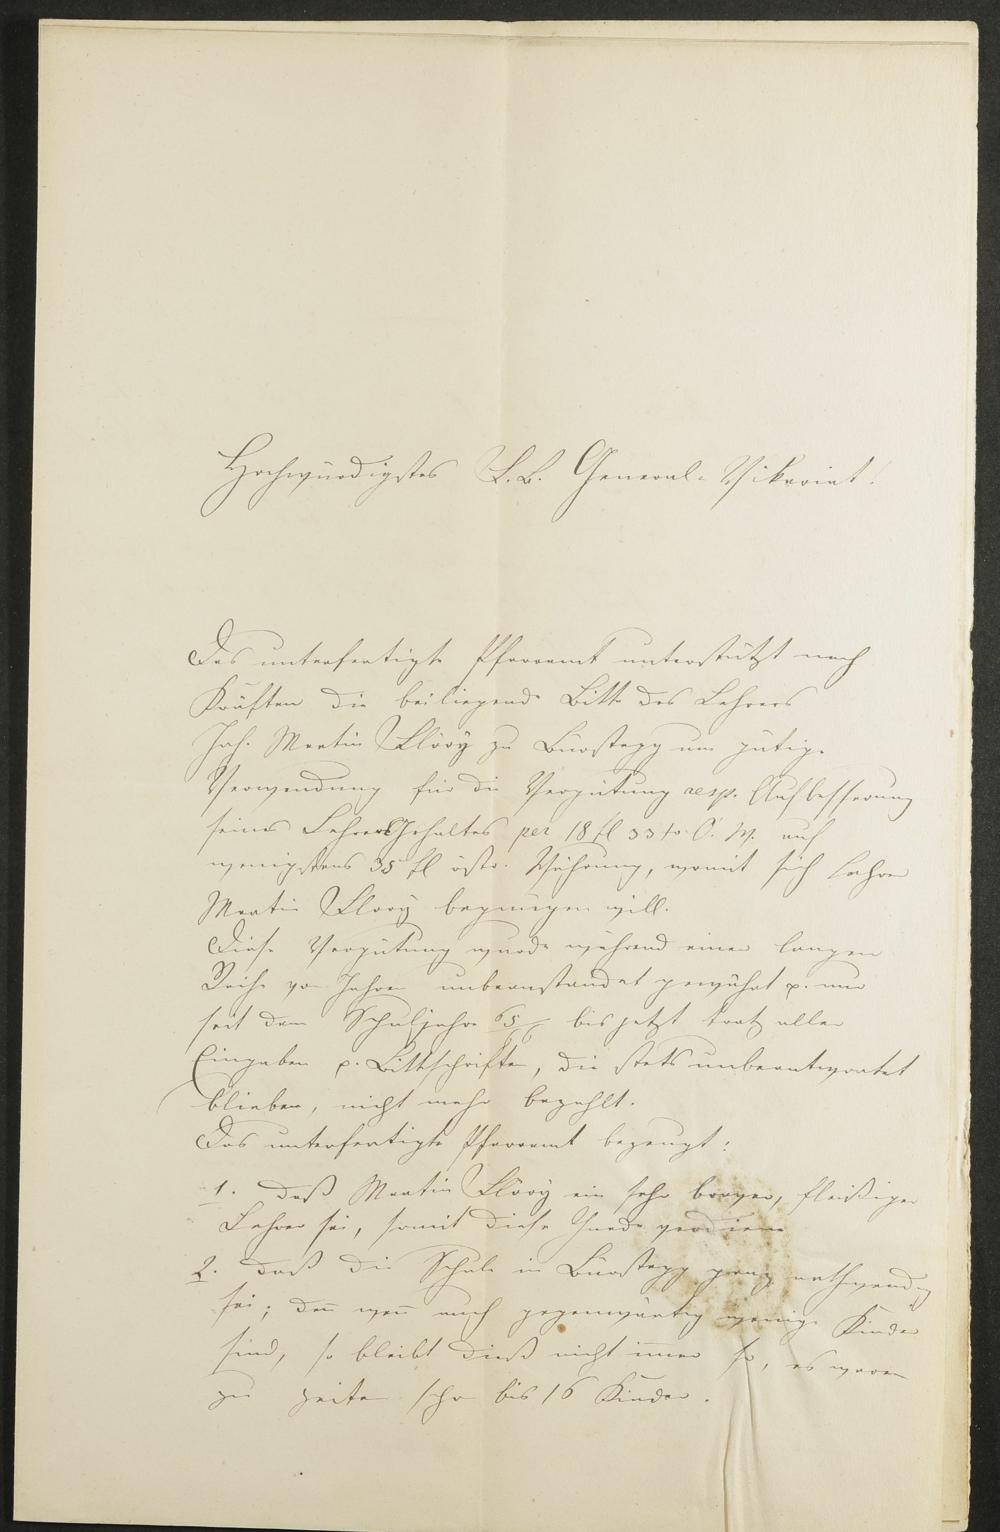 Hochwürdigstes F. B. General-Vikariat!
Das unterfertigte Pfarramt unterstützt nach
Kräften die beiliegende Bitte des Lehrers
Joh. Martin Flöry zu Bürstegg um gütige
Verwendung für die Vergütung resp. Aufbesserung
seines Lehrers Gehaltes per 18 fl 33 kr. Ö. W. auf
wenigstens 35 fl östr. Währung, womit sich Lehrer
Martin Flöry begnügen will.
Diese Vergütung wurde während einer langen
Reihe von Jahren unbeanstandet gewährt u. nur
seit dem Schuljahre 65/66 bis jetzt trotz aller
Eingaben u. Bittschriften, die stets unbeantwortet
blieben, nicht mehr bezahlt.
Das unterfertigte Pfarramt bezeugt:
1. daß Martin Flöry ein sehr braver, fleißiger
Lehrer sei, somit diese Gnade verdiene
2. daß die Schule in Bürstegg ganz nothwendig
sei; den̄ wen̄ auch gegenwärtig wenige Kinder
sind, so bleibt dieß nicht im̄er so, es waren
zu Zeiten schon bis 16 Kinder.